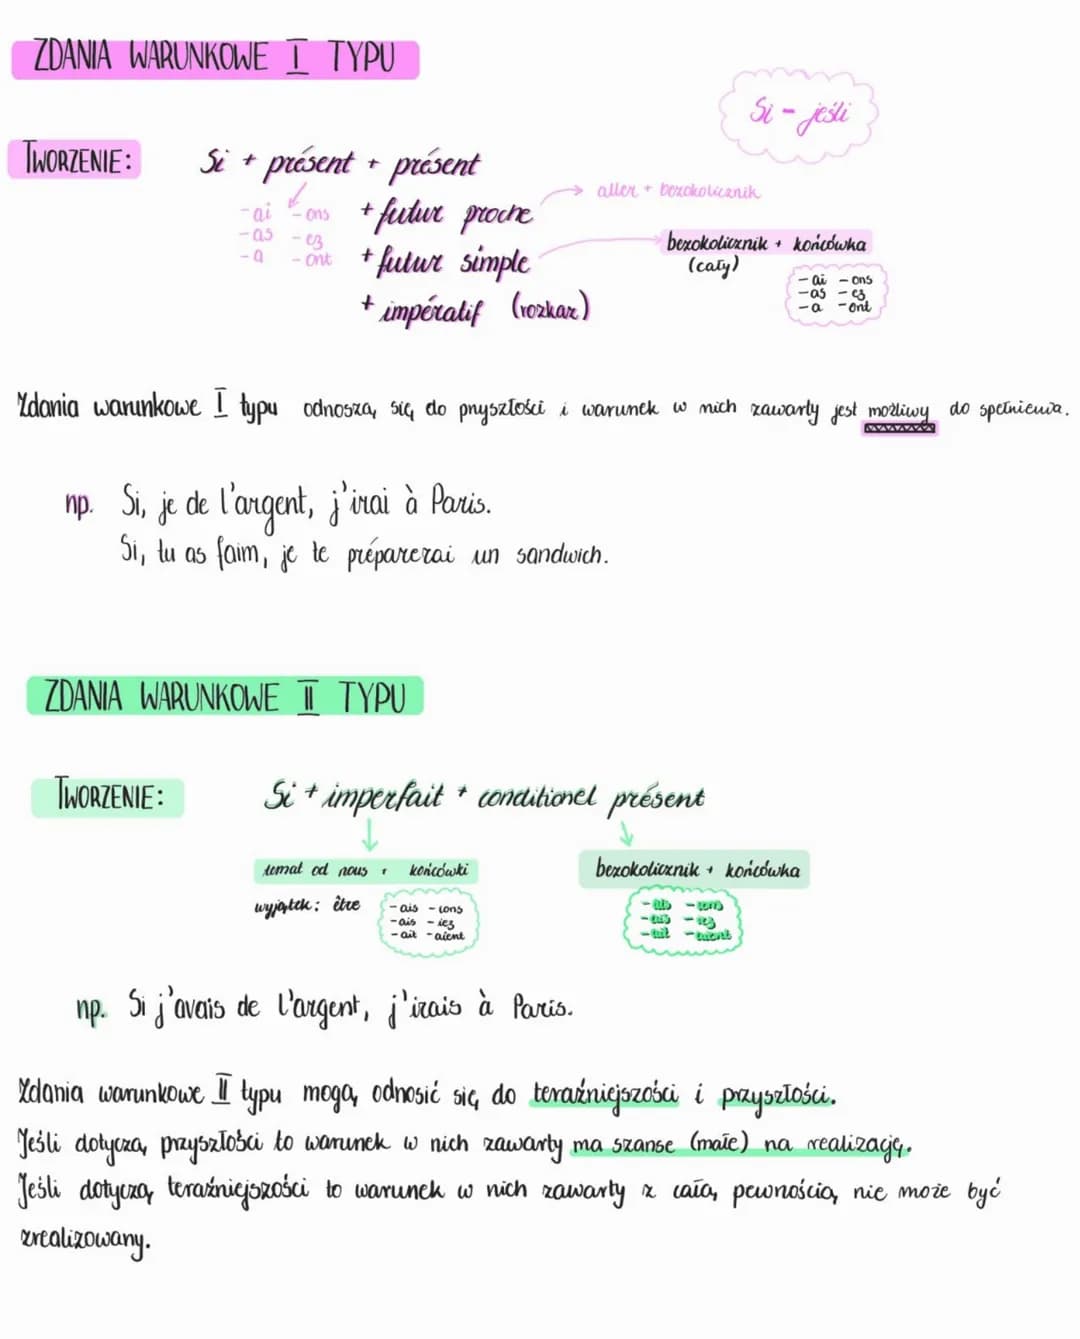 ZDANIA WARUNKOWE I TYPU
Si - jeśli
TWORZENIE:
Si + présent + présent
-ai -ons
-as -ez
-a -ont
+ futur proche
aller + bezokolicznik
+ futur simple
bezokolicznik + końcówka
(cały)
-ai -ons
-as -ez
-a -ont
+ impératif (rozkaz)
Zdania warunkowe I typu odnoszą się do pnyszłości i warunek w nich zawarty jest możliwy do spełnienia.
np. Si, je de l'argent, j'irai à Paris.
Si, tu as faim, je te préparerai un sandwich.
ZDANIA WARUNKOWE II TYPU
TWORZENIE:
Si + imperfait + conditionel présent
temat od nous + końcówki
wyjątek: être
-ais -ions
-ais -iez
-ait -aient
bezokolicznik + końcówka
-ais -ions
-ais -iez
-ait -aient
np. Si j'avais de l'argent, j'irais à Paris.
Zdania warunkowe II typu mogą odnosić się do teraźniejszości i przyszłości.
Jeśli dotyczą przyszłości to warunek w nich zawarty ma szanse (małe) na realizację.
Jeśli dotyczą teraźniejszości to warunek w nich zawarty z całą pewnością nie może być
zrealizowany.